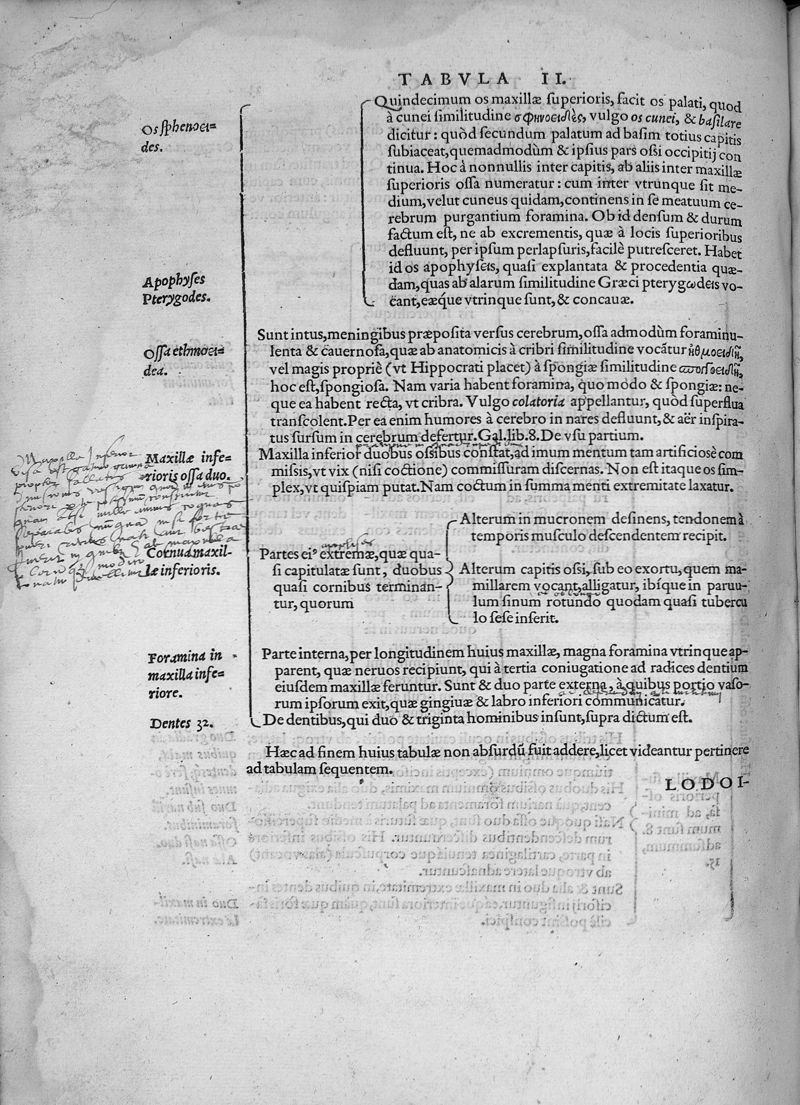 TABVLA II.
Os sphenoei=
des.
Quindecimum os maxillæ superioris, facit os palati, quod
à cunei similitudine σφηνοειδὲς, vulgo os cunei, & basilare
dicitur: quòd secundum palatum ad basim totius capitis
subiaceat, quemadmodùm & ipsius pars ossi occipitij con
tinua. Hoc à nonnullis inter capitis, ab aliis inter maxillæ
superioris ossa numeratur: cum inter vtrunque sit me-
dium, velut cuneus quidam, continens in se meatuum ce-
rebrum purgantium foramina. Ob id densum & durum
factum est, ne ab excrementis, quæ à locis superioribus
defluunt, per ipsum perlapsuris, facilè putresceret. Habet
id os apophyseis, quasi explantata & procedentia quæ-
dam, quas ab alarum similitudine Græci pterygωdeis vo-
cant, eæque vtrinque sunt, & concauæ.
Apophyses
Pterygodes.
Ossa ethmoei=
dea.
Sunt intus, meningibus præposita versus cerebrum, ossa admodùm foraminu-
lenta & cauernosa, quæ ab anatomicis à cribri similitudine vocātur ἠθμοειδῆ,
vel magis propriè (vt Hippocrati placet) à spongiæ similitudine σπογγοειδῆ,
hoc est, spongiosa. Nam varia habent foramina, quo modo & spongiæ: ne-
que ea habent recta, vt cribra. Vulgo colatoria appellantur, quòd superflua
transcolent. Per ea enim humores à cerebro in nares defluunt, & aër inspira-
tus sursum in cerebrum defertur. Gal. lib. 8. De vsu partium.
Maxillæ infe=
rioris ossa duo.
Maxilla inferior duobus ossibus constat, ad imum mentum tam artificiosè com
missis, vt vix (nisi coctione) commissuram discernas. Non est itaque os sim-
plex, vt quispiam putat. Nam coctum in summa menti extremitate laxatur.
Maxilla Inferior
Cornua maxil-
læ inferioris.
Partes eius extremæ, quæ qua-
si capitulatæ sunt, duobus
quasi cornibus terminan-
tur, quorum
Alterum in mucronem desinens, tendonem à
temporis musculo descendentem recipit.
Alterum capitis ossi, sub eo exortu, quem ma-
millarem vocant, alligatur, ibíque in paruu-
lum sinum rotundo quodam quasi tubercu
lo sese inserit.
Foramina in
maxilla infe=
riore.
Parte interna, per longitudinem huius maxillæ, magna foramina vtrinque ap-
parent, quæ neruos recipiunt, qui à tertia coniugatione ad radices dentium
eiusdem maxillæ feruntur. Sunt & duo parte externa, à quibus portio vaso-
rum ipsorum exit, quæ gingiuæ & labro inferiori communicatur.
Dentes 32.
De dentibus, qui duo & triginta hominibus insunt, supra dictum est.
Hæc ad finem huius tabulæ non absurdū fuit addere, licet videantur pertinere
ad tabulam sequentem.
LODOI-